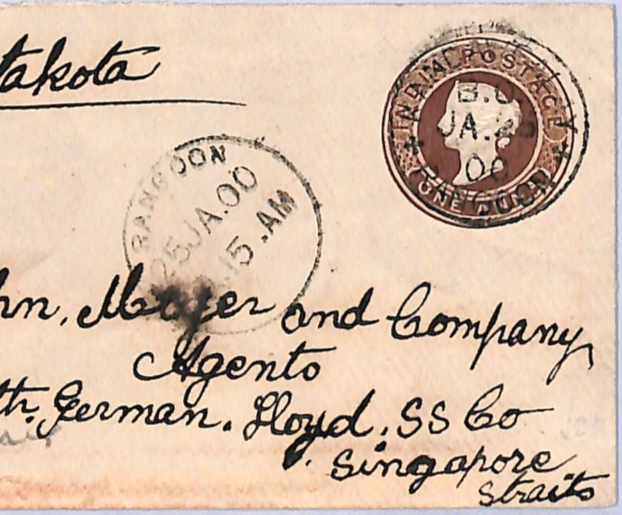 takota
INDIA POSTAGE
ONE ANNA
B.O.
JA.25
00
RANGOON
RANGOON
25JA.00
15.AM
hn, Meyer and Company
Agents
th German. Lloyd. SS Co
Singapore
Straits